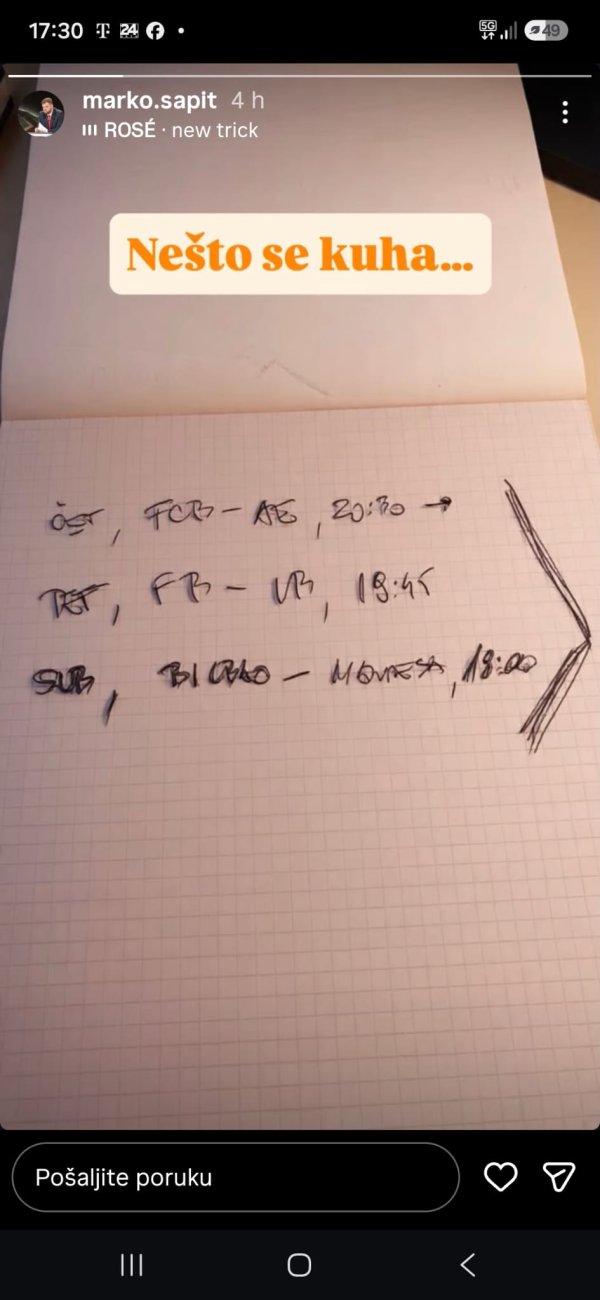 17:30 24 5G 49
marko.sapit 4 h
ROSÉ · new trick
Nešto se kuha...
ČET, FCB - AE, 20:30 →
PET, FB - VB, 19:45
SUB, BILBAO - MANRESA, 18:00
Pošaljite poruku